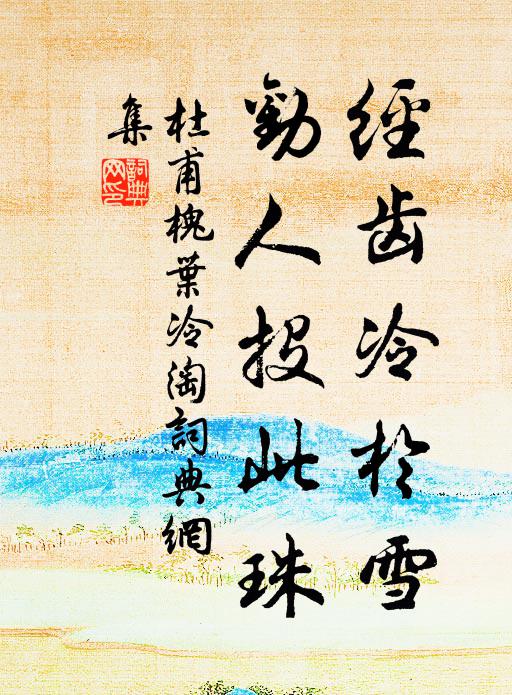 经齿冷於雪
勸人投此珠
杜甫槐葉冷淘詞典網
集
詞典
网印